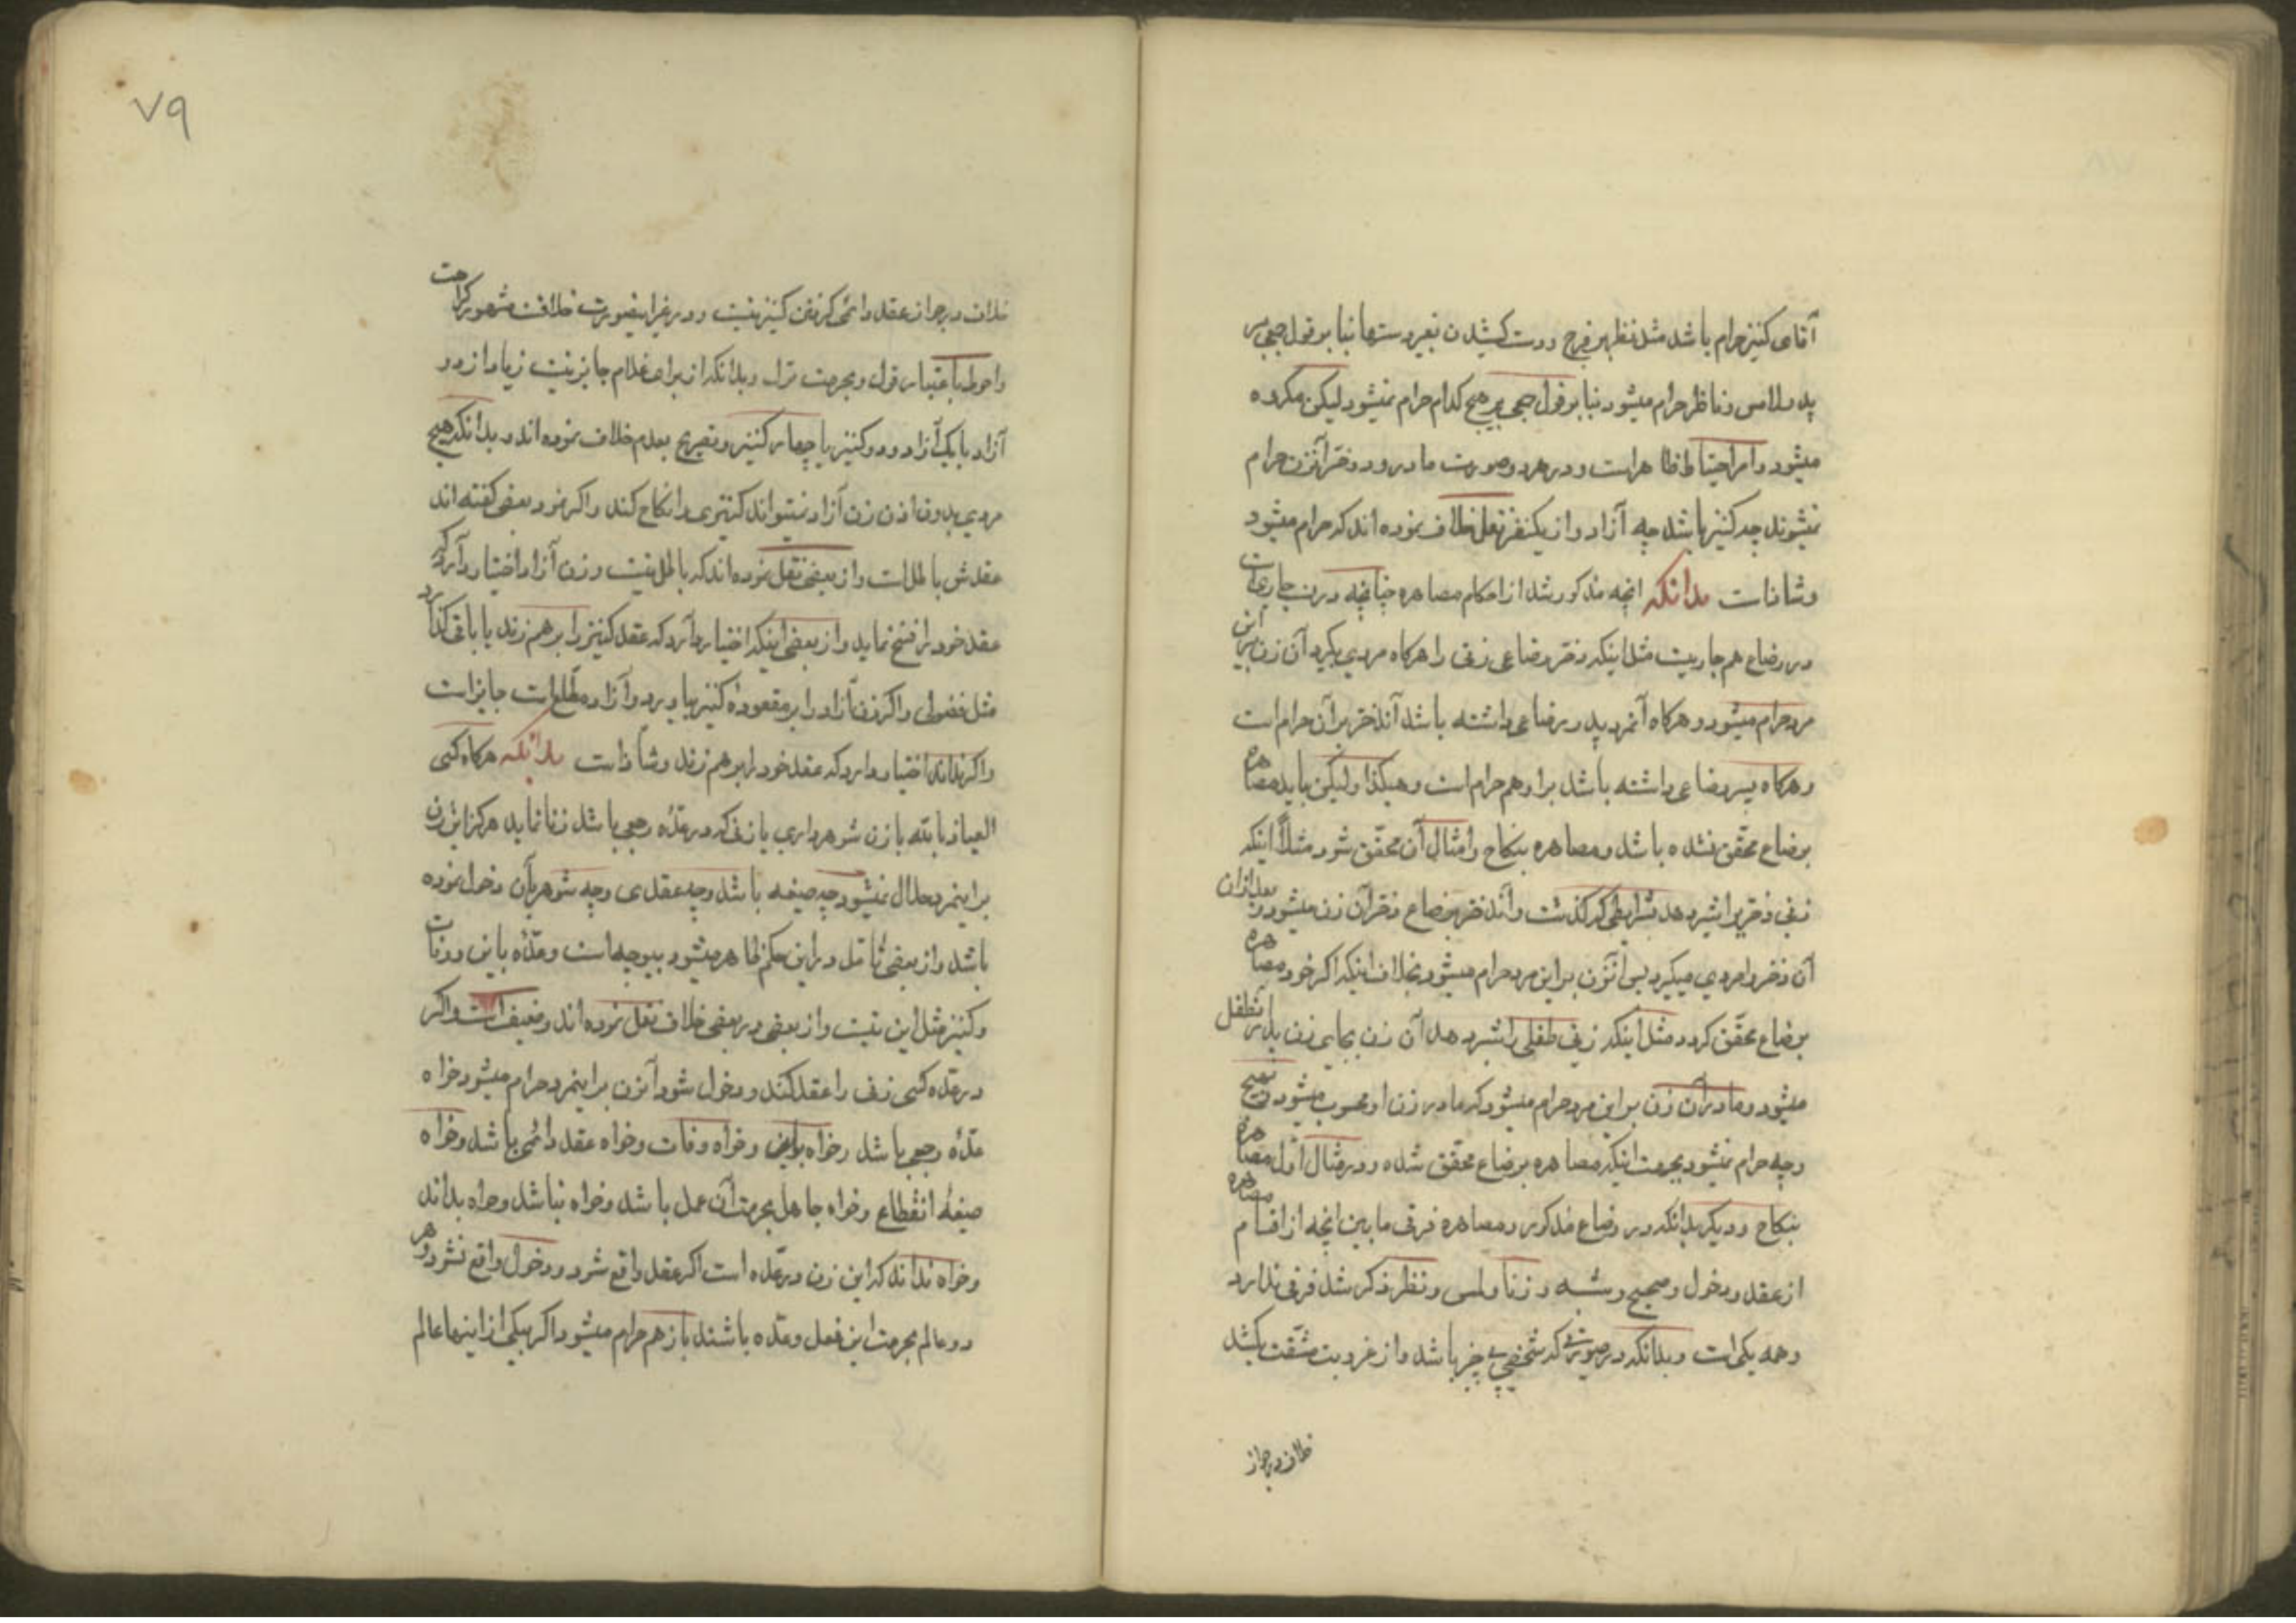 آقای کنیز حرام باشد مثل نظر بفرج و دست کشیدن بغیر دستها بنا بر قول جمعی بر
پدر ملامس و ناظر حرام میشود بنا بر قول جمعی بر هیچ کدام حرام نمیشود لیکن مکروه
میشود و امر احتیاط ظاهر است و در هر دو صورت مادر و دختر آنزن حرام
نمیشوند چه کنیز باشد چه آزاد و از یکنفر نقل خلاف نموده اند که حرام میشود
و شاذ است بدانکه آنچه مذکور شد از احکام مصاهره چنانچه در نسب جاریست
در رضاع هم جاریست مثل اینکه دختر رضاعی زنی را هرگاه مردی بگیرد آن زن بر این
مرد حرام میشود و هرگاه آنمرد پدر رضاعی داشته باشد آندختر بر آن حرام است
و هرگاه پسر رضاعی داشته باشد بر او هم حرام است و هکذا و لیکن باید مصاهره
برضاع محقّق نشده باشد و مصاهره بنکاح و امثال آن محقّق شود مثلاً اینکه
زنی دختری را شیر دهد بشرایطی که گذشت و آندختر برضاع دختر آن زن میشود و بعد از آن
آن دختر را مردی میگیرد پس آنزن بر این مرد حرام میشود بخلاف اینکه اگر خود مصاهره
برضاع محقّق گردد مثل اینکه زنی طفلی را شیر دهد آن زن بجای زن پدر آنطفل
میشود و مادر آن زن بر این مرد حرام میشود که مادر زن او محسوب میشود بهیچ
وجه حرام نمیشود بجهت اینکه مصاهره برضاع محقق شده و در مثال اول مصاهره
بنکاح و دیگر بدانکه در رضاع مذکور و مصاهره فرقی مابین آنچه از اقسام
از عقد و دخول و صحیح و شبهه و زنا و لمس و نظر ذکر شد فرقی ندارد
و همه یکی است و بدانکه در صورتی که شخصی بی چیز باشد و از عزوبت مشقّت بکشد
خلاف در جواز
٧٩
خلاف در جواز عقد دائمی کرفتن کنیز نیست و در غیر اینصورت خلافست مشهور کراهت
و احوط باعتبار قول و بحرمت ترک و بدانکه از برای غلام جایز نیست زیاد از دو
آزاد یا یک آزاد و دو کنیز یا چهار کنیز و تصریح بعدم خلاف نموده اند و بدانکه هیچ
مردی بدون اذن زن آزاد نمیتواند کنیزی را نکاح کند و اگر نمود بعضی گفته اند
عقدش باطل است و از بعضی نقل نموده اند که باطل نیست و زن آزاد اختیار دارد که
عقد خود را فسخ نماید و از بعضی اینکه اختیار دارد که عقد کنیز را بر هم زند یا باقی گذارد
مثل فضولی و اگر زن آزاد را بر معقوده کنیز بیاورد و آزاد مطّلع است جایز است
و اگر نداند اختیار دارد که عقد خود را بر هم زند و شاذ است بدانکه هرگاه کسی
العیاذ بالله با زن شوهرداری یا زنی که در عدّه رجعی باشد زنا نماید هرگز این زن
بر اینمرد حلال نمیشود چه صیغه باشد و چه عقدی و چه شوهر بآن دخول نموده
باشد و از بعضی تأمّل در این حکم ظاهر میشود بیوجه است و عدّه باین و وفات
و کنیز مثل این نیست و از بعضی در بعضی خلاف نقل نموده اند و ضعیف است و اگر
در عدّه کسی زنی را عقد کند و دخول شود آنزن بر اینمرد حرام میشود خواه
عدّه رجعی باشد و خواه باین و خواه وفات و خواه عقد دائمی باشد و خواه
صیغهٔ انقطاع و خواه جاهل بحرمت آن عمل باشد و خواه نباشد و خواه بداند
و خواه نداند که این زن در عدّه است اگر عقد واقع شود و دخول واقع نشود و هر
دو عالم بحرمت این فعل و عدّه باشند باز هم حرام میشود و اگر یکی از اینها عالم